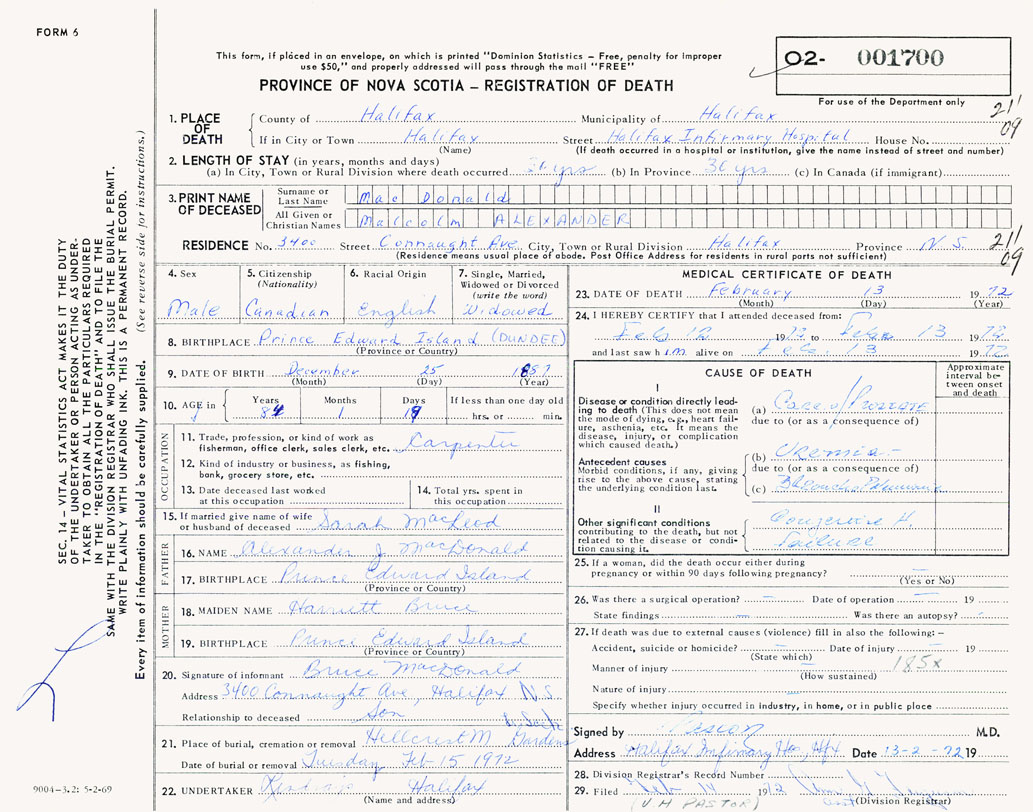 FORM 6
This form, if placed in an envelope, on which is printed "Dominion Statistics – Free, penalty for improper
use $50," and properly addressed will pass through the mail "FREE"
O2- 001700
PROVINCE OF NOVA SCOTIA – REGISTRATION OF DEATH
For use of the Department only
21'
09
1. PLACE OF DEATH
County of Halifax Municipality of Halifax
If in City or Town Halifax Street Halifax Infirmary Hospital House No.
(Name) (If death occurred in a hospital or institution, give the name instead of street and number)
2. LENGTH OF STAY (in years, months and days)
(a) In City, Town or Rural Division where death occurred 36 yrs (b) In Province 36 yrs (c) In Canada (if immigrant)
3. PRINT NAME OF DECEASED
Surname or Last Name MacDonald
All Given or Christian Names Malcolm ALEXANDER
RESIDENCE No. 3400 Street Connaught Ave. City, Town or Rural Division Halifax Province N.S.
21'
09
(Residence means usual place of abode. Post Office Address for residents in rural parts not sufficient)
4. Sex
Male
5. Citizenship (Nationality)
Canadian
6. Racial Origin
English
7. Single, Married, Widowed or Divorced (write the word)
Widowed
8. BIRTHPLACE Prince Edward Island (DUNDEE)
(Province or Country)
9. DATE OF BIRTH December 25 1887
(Month) (Day) (Year)
10. AGE in Years Months Days If less than one day old
84 1 19 hrs. or min.
OCCUPATION
11. Trade, profession, or kind of work as
fisherman, office clerk, sales clerk, etc. Carpenter
12. Kind of industry or business, as fishing,
bank, grocery store, etc.
13. Date deceased last worked at this occupation
14. Total yrs. spent in this occupation
15. If married give name of wife
or husband of deceased Sarah MacLeod
FATHER
16. NAME Alexander J. MacDonald
17. BIRTHPLACE Prince Edward Island
(Province or Country)
MOTHER
18. MAIDEN NAME Harriett Bruce
19. BIRTHPLACE Prince Edward Island
(Province or Country)
20. Signature of informant Bruce MacDonald
Address 3400 Connaught Ave, Halifax N.S.
Relationship to deceased Son
21. Place of burial, cremation or removal Hillcrest M. Gardens
Date of burial or removal Tuesday Feb 15 1972
22. UNDERTAKER Halifax
(Name and address)
MEDICAL CERTIFICATE OF DEATH
23. DATE OF DEATH February 13 1972
(Month) (Day) (Year)
24. I HEREBY CERTIFY that I attended deceased from:
Feb 12 1972 to Feb 13 1972
and last saw him alive on Feb. 13 1972
CAUSE OF DEATH
Approximate interval between onset and death
I
Disease or condition directly leading to death (This does not mean
the mode of dying, e.g., heart failure, asthenia, etc. It means the
disease, injury, or complication
which caused death.)
(a) Prostate
due to (or as a consequence of)
Antecedent causes
Morbid conditions, if any, giving
rise to the above cause, stating
the underlying condition last.
(b) Uremia
due to (or as a consequence of)
(c) Broncho Pneumonia
II
Other significant conditions
contributing to the death, but not
related to the disease or condition causing it.
Congestive H.
failure
25. If a woman, did the death occur either during
pregnancy or within 90 days following pregnancy? –
(Yes or No)
26. Was there a surgical operation? – Date of operation – 19
State findings – Was there an autopsy?
27. If death was due to external causes (violence) fill in also the following: –
Accident, suicide or homicide? – Date of injury – 19
(State which)
Manner of injury 185x
(How sustained)
Nature of injury –
Specify whether injury occurred in industry, in home, or in public place
Signed by M.D.
Address Halifax Infirmary Hos, Hfx Date 13-2-72 19
28. Division Registrar's Record Number
29. Filed Feb 14 1972
(Division Registrar)
(V H PASTOR)
SEC. 14 – VITAL STATISTICS ACT MAKES IT THE DUTY
OF THE UNDERTAKER OR PERSON ACTING AS UNDERTAKER
TO OBTAIN ALL THE PARTICULARS REQUIRED
IN THE "REGISTRATION OF DEATH" AND TO FILE THE
SAME WITH THE DIVISION REGISTRAR WHO SHALL ISSUE THE BURIAL PERMIT.
WRITE PLAINLY WITH UNFADING INK. THIS IS A PERMANENT RECORD.
Every item of information should be carefully supplied. (See reverse side for instructions.)
9004-3.2: 5-2-69